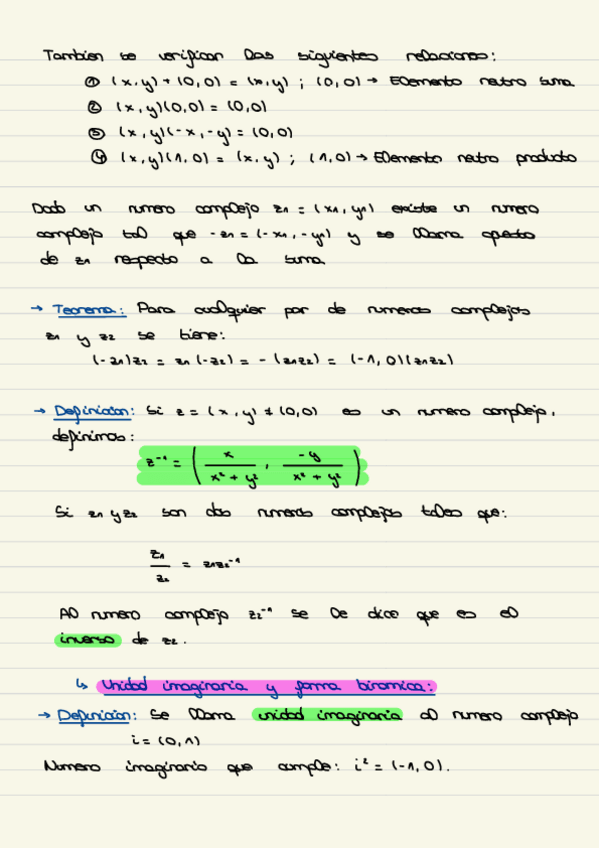 Tambien se verifican las siguientes relaciones:
① (x,y) + (0,0) = (x,y) ; (0,0) → Elemento neutro suma
② (x,y)(0,0) = (0,0)
③ (x,y)(-x,-y) = (0,0)
④ (x,y)(1,0) = (x,y) ; (1,0) → Elemento neutro producto
Dado un numero complejo z₁ = (x₁, y₁) existe un numero
complejo tal que -z₁ = (-x₁, -y₁) y se llama opuesto
de z₁ respecto a la suma
→ Teorema: Para cualquier par de numeros complejos
z₁ y z₂ se tiene:
(-z₁)z₂ = z₁(-z₂) = -(z₁z₂) = (-1,0)(z₁z₂)
→ Definicion: Si z = (x,y) ≠ (0,0) es un numero complejo,
definimos:
z⁻¹ = ( x / (x² + y²) , -y / (x² + y²) )
Si z₁ y z₂ son dos numeros complejos tales que:
z₁ / z₂ = z₁z₂⁻¹
Al numero complejo z₂⁻¹ se le dice que es el
inverso de z₂.
↳ Unidad imaginaria y forma binomica:
→ Definicion: Se llama unidad imaginaria al numero complejo
i = (0,1)
Numero imaginario que cumple: i² = (-1,0).